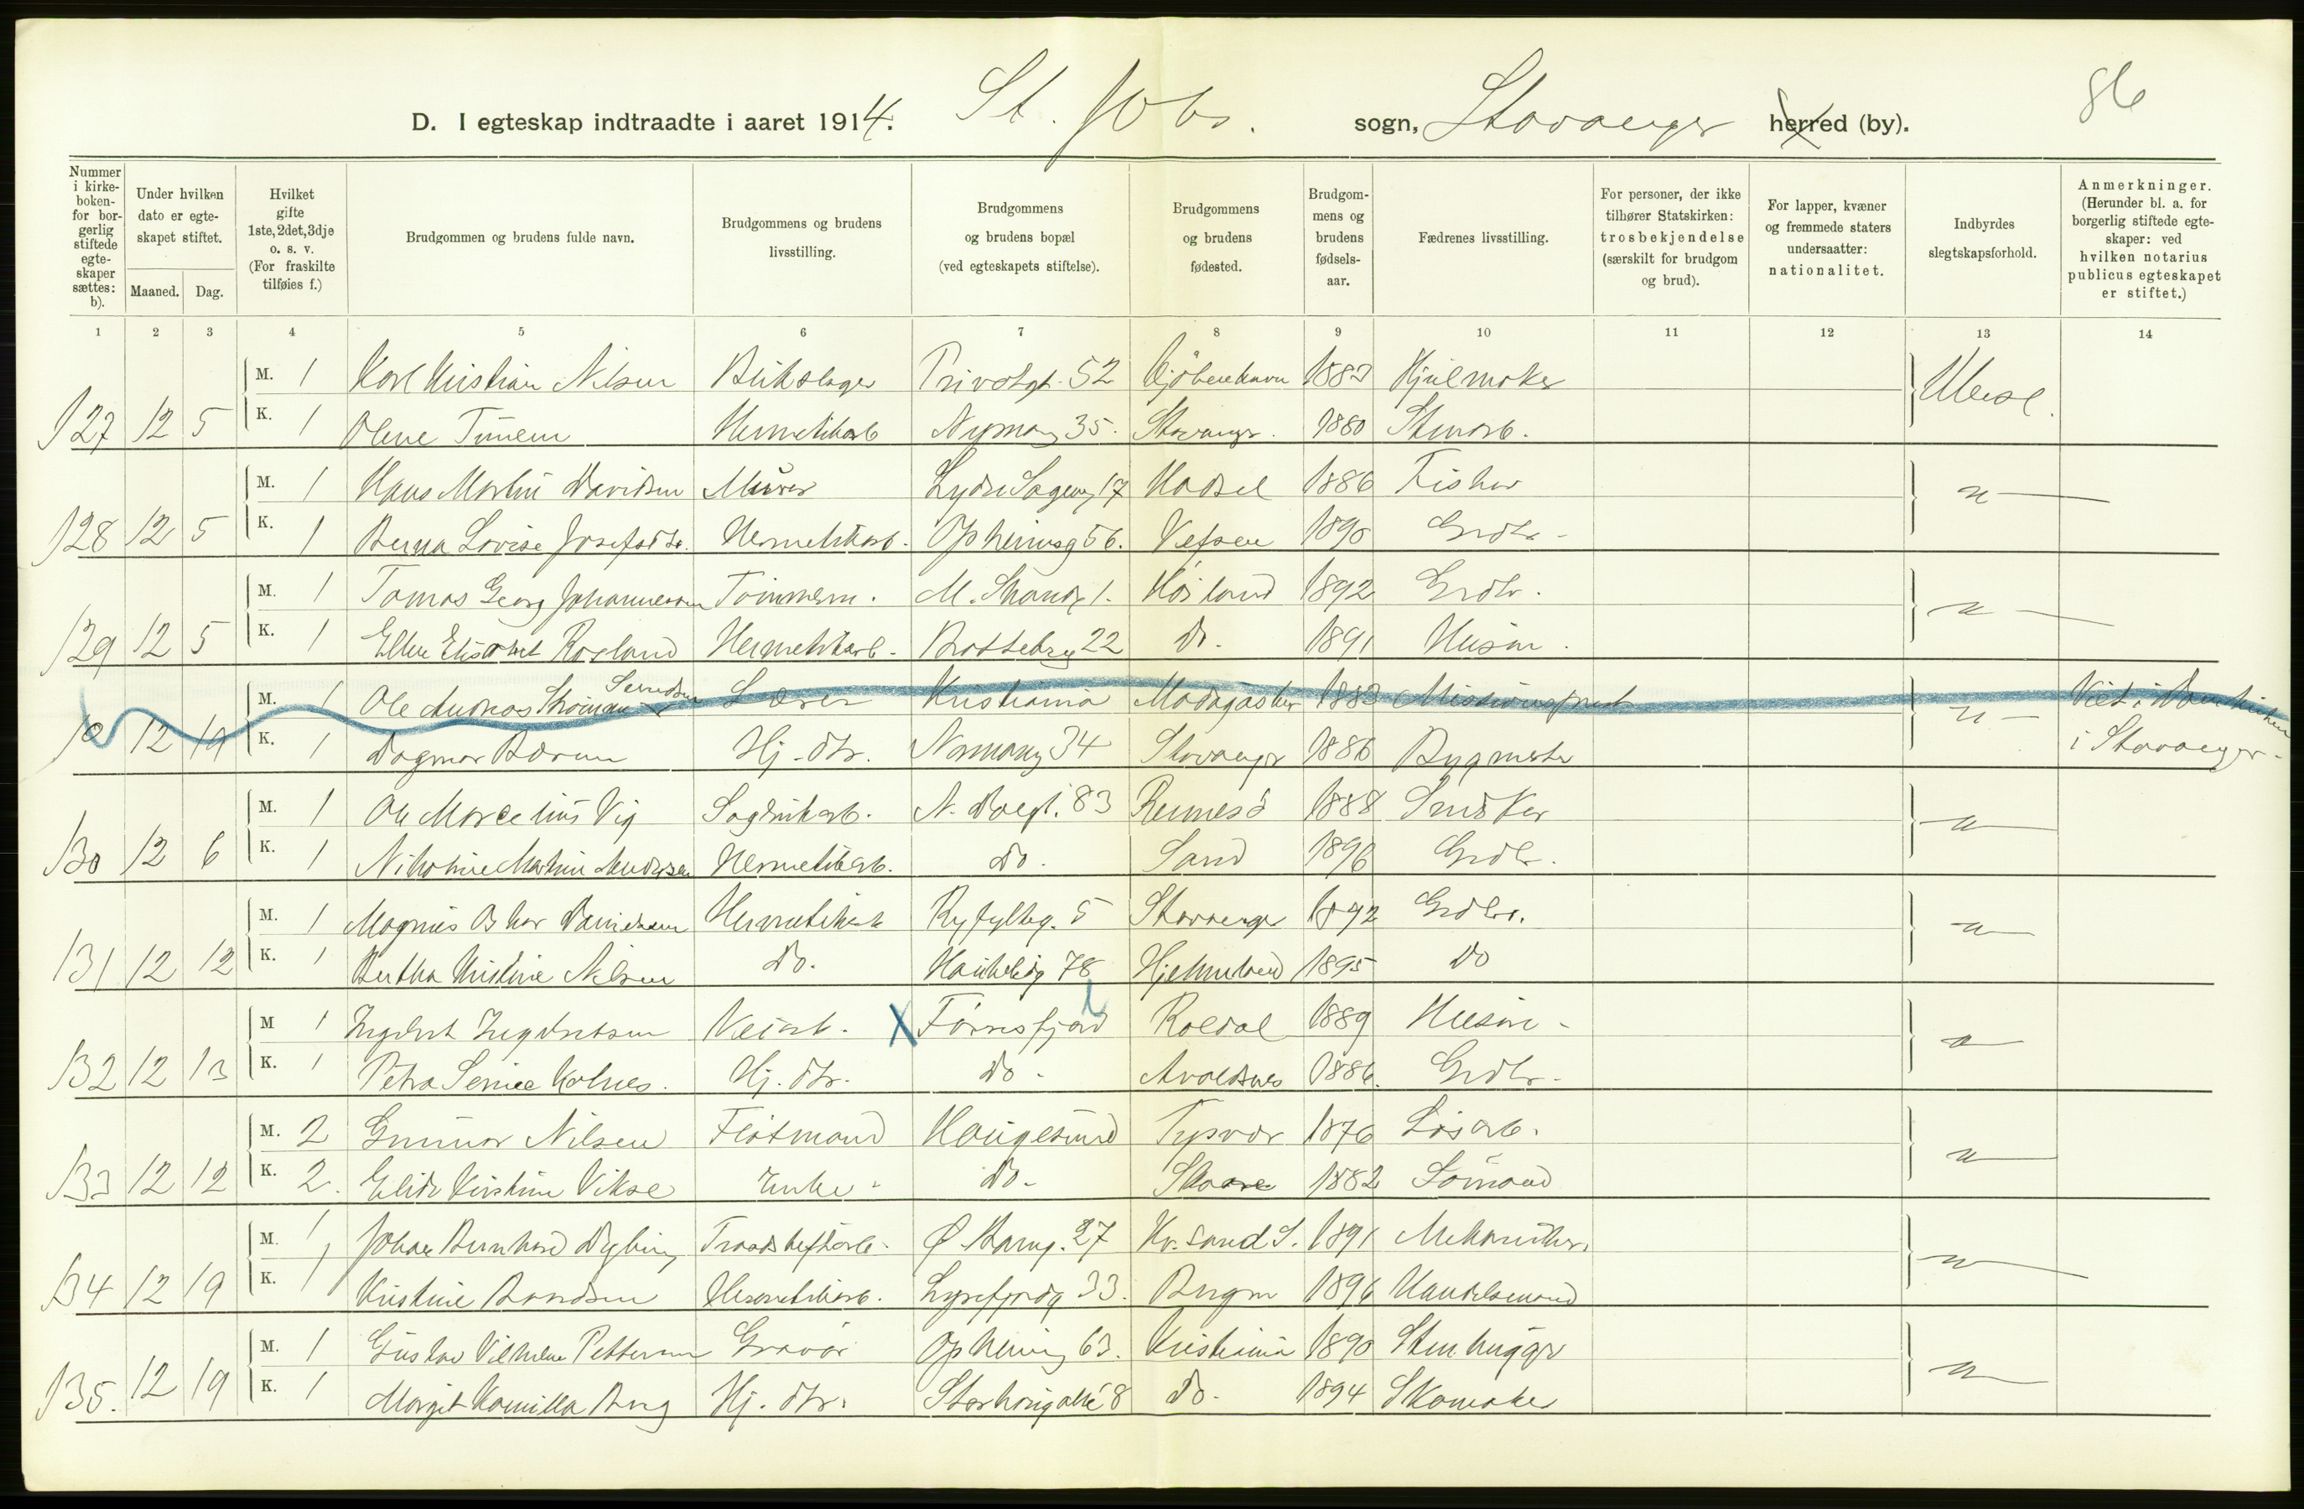 86
D. I egteskap indtraadte i aaret 1914. St. Johs. sogn, Stavanger herred (by).
Nummer i kirkeboken for borgerlig stiftede egteskaper sættes: b).
Under hvilken dato er egteskapet stiftet.
Maaned. Dag.
Hvilket gifte 1ste, 2det, 3dje o. s. v. (For fraskilte tilføies f.)
Brudgommen og brudens fulde navn.
Brudgommens og brudens livsstilling.
Brudgommens og brudens bopæl (ved egteskapets stiftelse).
Brudgommens og brudens fødested.
Brudgommens og brudens fødselsaar.
Fædrenes livsstilling.
For personer, der ikke tilhører Statskirken: trosbekjendelse (særskilt for brudgom og brud).
For lapper, kvæner og fremmede staters undersaatter: nationalitet.
Indbyrdes slegtskapsforhold.
Anmerkninger. (Herunder bl. a. for borgerlig stiftede egteskaper: ved hvilken notarius publicus egteskapet er stiftet.)
1 2 3 4 5 6 7 8 9 10 11 12 13 14
M. 1 Karl Kristian Nilsen Blikslager Privatgt. 52 Kjöbenhavn 1883 Hjulmaker
127 12 5 K. 1 Olene Tunem Hermetikarb Nymansv 35. Stavanger. 1880 Stenarb.
M. 1 Hans Martin Davidsen Murer Lyder Sagensg 17 Hadsel 1886 Fisker
128 12 5 K. 1 Berna Lovise Josefsdtr. Hermetikarb. Opheimsg 56. Vefsen 1890 Grdbr.
M. 1 Tomas Georg Johannessen Tömmerm. M. Strandg 1. Höiland 1892 Grdbr.
129 12 5 K. 1 Ellen Elisabet Rosland Hermetikarb. Brattebrg 22 Do. 1891 Husm.
M. 1 Ole Andreas Strömme Lærer Kristiania Madagaskar 1883 Missionsprest
12 19 K. 1 Dagmar Bærum Hj. dtr. Normansg 34 Stavanger 1886 Bygmester i Stavanger.
M. 1 Ole Marcelius Vig Sagbrukarb. N. Dalgt. 83 Rennesö 1888 Snedker
130 12 6 K. 1 Nikoline Martine Andersen Hermetikarb. Do. Sand 1896 Grdbr.
M. 1 Magnus Oskar Danielsen Hermetikarb Ryfylkeg. 5 Stavanger 1892 Grdbr.
131 12 12 K. 1 Bertha Kristine Nilsen Do. Haukeligt 78 Hjelmeland 1895 Do
M 1 Ingebret Ingebretsen Veiarb. X Förresfjord Roldal 1889 Husm.
132 12 13 K. 1 Petra Serine Kolnes. Hj. dtr. Do. Avaldsnes 1886. Grdbr.
M. 2 Gunnar Nilsen Flötmand Haugesund Tysvær 1876 Lösarb.
133 12 12 K. 2. Elida Kirstine Vikse Enke Do. Skaare 1882 Sömand
M. 1 Johan Bernhard Dybing Traadstiftarb. Ø. Bang. 27 Kr. sand S. 1891 Mekaniker.
134 12 19 K. 1 Kristine Bandsen Hermetikarb. Lysefjordg 33. Bergen 1896 Handelsmand
M. 1 Gustav Vilhelm Pettersen Gravör Opheimsg 63. Kristiania 1890 Stenhugger
135. 12 19 K. 1 Margit Kamilla Berg Hj. dtr. Storhaugallé 8 Do. 1894 Skomaker